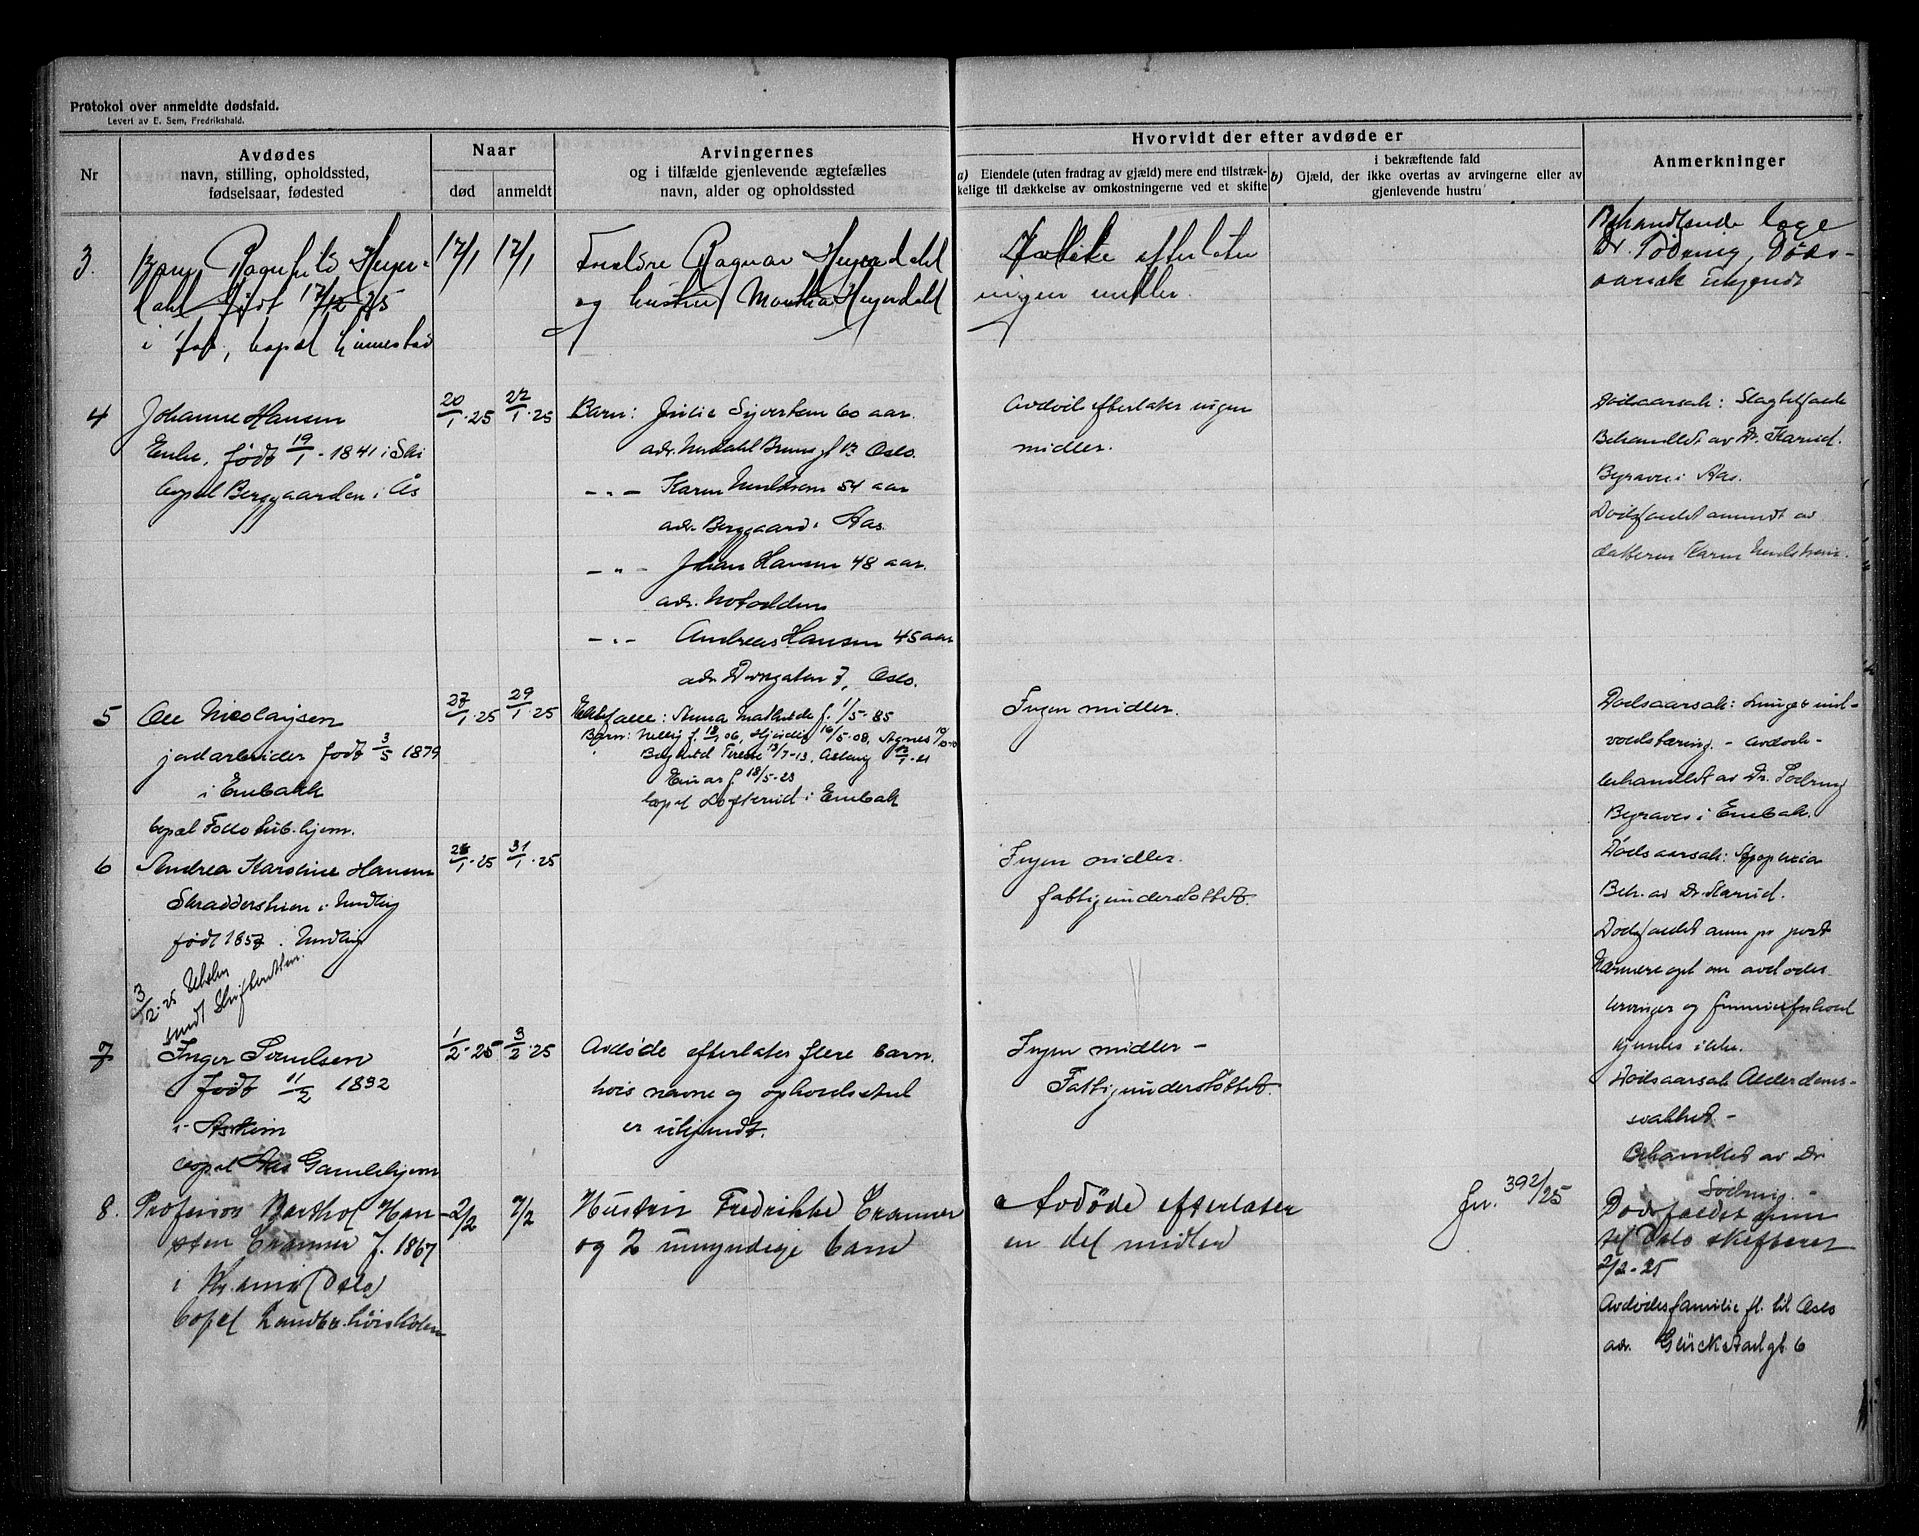 Protokol over anmeldte dødsfald.
Levert av E. Sem, Fredrikshald.
Nr
Avdødes
navn, stilling, opholdssted,
fødselsaar, fødested
Naar
død
anmeldt
Arvingernes
og i tilfælde gjenlevende ægtefælles
navn, alder og opholdssted
Hvorvidt der efter avdøde er
a) Eiendele (uten fradrag av gjæld) mere end tilstræk-
kelige til dækkelse av omkostningerne ved et skifte
i bekræftende fald
b) Gjæld, der ikke overtas av arvingerne eller av
gjenlevende hustru
Anmerkninger
3.
Ragnhild Heyer-
dahl født 17/12-25
i bopæl
17/1
17/1
Foreldre Ragnar Heyerdahl
og hustru Martha Heyerdahl
efterlater
ingen midler.
Behandlende læge
Dr. Sødring, Døds-
aarsak ukjendt
4
Johanne Hansen
Enke, født 19/1-1841 i Ski
bopæl Berggaarden i Ås
20/1-25
22/1-25
Barn: Julie Syvertsen 60 aar.
adr. Nordahl Brunsg 13 Oslo.
-"- Karen 54 aar
adr. Berggaard i Aas
-"- Johan Hansen 48 aar.
adr. Notodden
-"- Andreas Hansen 45 aar
adr. 7, Oslo.
Avdøde efterlater ingen
midler.
Dødsaarsak: Slagtilfælde
Behandlet av Dr. Harud.
Begraves i Aas.
Dødsfaldet anmeldt av
datteren Karen
5
Ole Nicolaysen
jordarbeider født 3/5 1879
i Enebakk
bopæl Follo tub.hjem.
27/1-25
29/1-25
Ektefælle: Anna Mathilde f. 1/5-85
Barn: Nelly f. 06, Hjørdis 16/5-08, Agnes
Terese 13/7-13, Aslaug
Einar f 18/5-23
bopel Lofterud i Enebak
Ingen midler.
Dødsaarsak: Lunge
- Avdøde
behandlet av Dr. Sødring
Begraves i Enebak.
6
Andrea Karoline Hansen
Skredderstuen i Nordby
født 1857. Nordby
3/2-25 Utskr.
sendt Skifteretten.
31/1-25
Ingen midler.
fattigunderstøttet.
Dødsaarsak: Apoplexia
Beh. av Dr. Harud.
Dødsfaldet anm pr post
Nærmere opl om avdødes
arvinger og formuesforhold
kjendes ikke.
7
Inger
født 11/2 1832
i Askim
bopæl Aas Gamlehjem
1/2-25
3/2-25
Avdøde efterlater flere barn.
hvis navne og opholdssted
er ukjendt.
Ingen midler -
Fattigunderstøttet.
Dødsaarsak Alderdoms-
svakhet -
Behandlet av Dr
Sødring. -
8.
Professor Barthol Han-
sten Cranner f. 1867
i Kr.ania (Oslo)
bopel Landbr.høiskolen
2/2
7/2
Hustru Fredrikke Cranner
og 2 umyndige barn
Avdøde efterlater
en del midler
Jnr. 392/25
Dødsfaldet anm
til Oslo skifteret
2/2-25
Avdødes familie fl. til Oslo
adr. Glückstadsgt 6